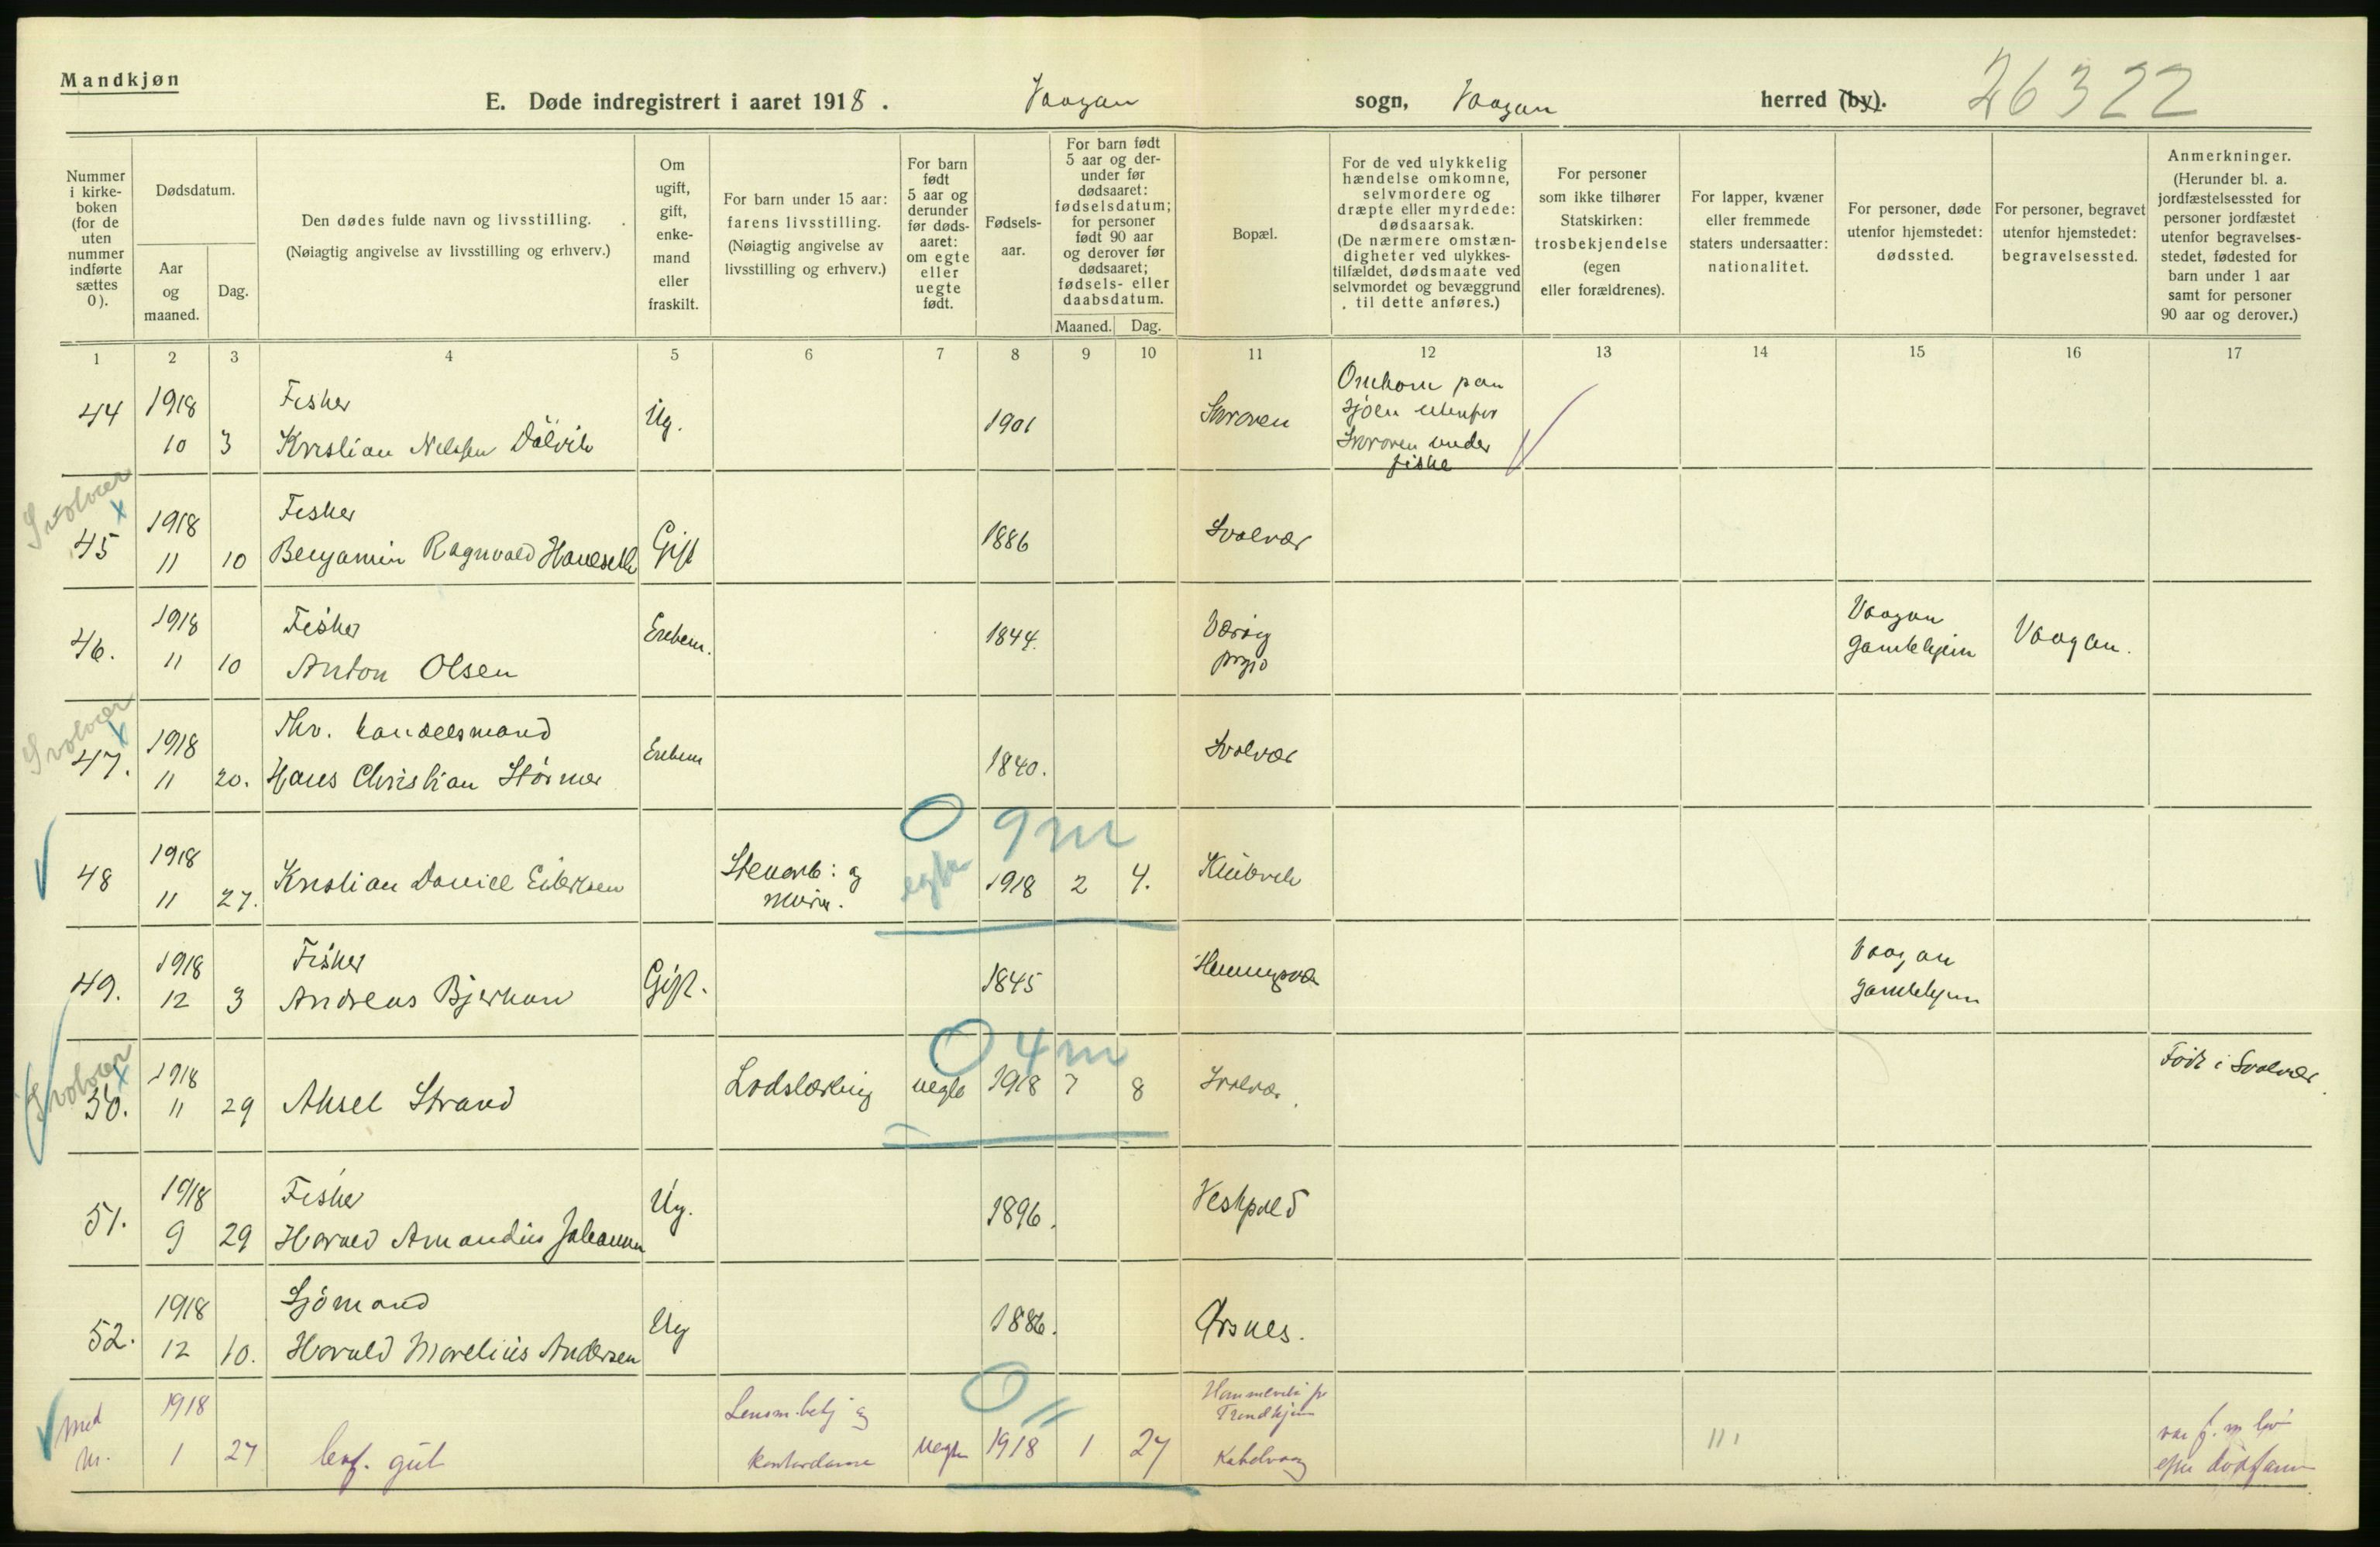 Mandkjøn
E. Døde indregistrert i aaret 1918. Vaagan sogn, Vaagan herred (by).
26322
Nummer i kirkeboken (for de uten nummer indførte sættes 0).
Dødsdatum.
Aar og maaned.
Dag.
Den dødes fulde navn og livsstilling.
(Nøiagtig angivelse av livsstilling og erhverv.)
Om ugift, gift, enkemand eller fraskilt.
For barn under 15 aar: farens livsstilling.
(Nøiagtig angivelse av livsstilling og erhverv.)
For barn født 5 aar og derunder før dødsaaret: om egte eller uegte født.
Fødselsaar.
For barn født 5 aar og derunder før dødsaaret: fødselsdatum; for personer født 90 aar og derover før dødsaaret; fødsels- eller daabsdatum.
Maaned. Dag.
Bopæl.
For de ved ulykkelig hændelse omkomne, selvmordere og dræpte eller myrdede: dødsaarsak.
(De nærmere omstændigheter ved ulykkestilfældet, dødsmaate ved selvmordet og bevæggrund til dette anføres.)
For personer som ikke tilhører Statskirken: trosbekjendelse (egen eller forældrenes).
For lapper, kvæner eller fremmede staters undersaatter: nationalitet.
For personer, døde utenfor hjemstedet: dødssted.
For personer, begravet utenfor hjemstedet: begravelsessted.
Anmerkninger.
(Herunder bl. a. jordfæstelsessted for personer jordfæstet utenfor begravelsesstedet, fødested for barn under 1 aar samt for personer 90 aar og derover.)
1 2 3 4 5 6 7 8 9 10 11 12 13 14 15 16 17
44 1918 10 3 Fisker
Kristian Nilssen Dalvik Ug. 1901 Skroven Omkom paa
sjøen utenfor
Skroven under
fiske
Svolvær
45 1918 11 10 Fisker
Benjamin Ragnvald Gift 1886 Svolvær
46. 1918 11 10 Fisker
Anton Olsen Enkem. 1844. Værøy
prgjd Vaagan
gamlehjem Vaagan.
Svolvær
47. 1918 11 20. Fhv. handelsmand
Hans Christian Størmer Enkem 1840. Svolvær
0 9 m
48 1918 11 27. Kristian Daniel Stenarb: og
murer. egte 1918 2 4.
49. 1918 12 3 Fisker
Andreas Bjerkan Gift. 1845 Henningsvær Vaagan
gamlehjem
0 4 m
Svolvær
50. 1918 11 29 Aksel Strand Lodslærling uegte 1918 7 8 Svolvær. Født i Svolvær.
51. 1918 9 29 Fisker
Harald Amandus Johansen Ug. 1896. Vestpold
52. 1918 12 10. Sjömand
Harald Marelius Andersen Ug 1886. Ørsnes.
0
med
nr. 1918 1 27 levf. gut Lensm.betj og
kontordame uegte 1918 1 27 Hammervik pr
Trondhjem
Kabelvaag